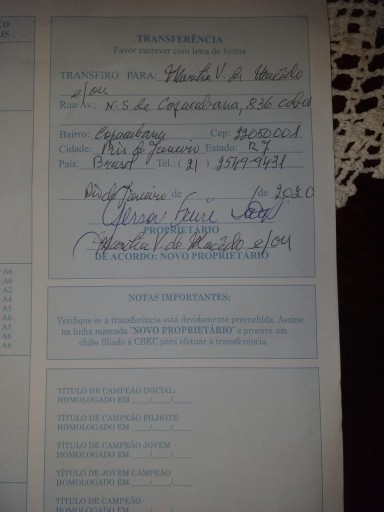 TRANSFERÊNCIA
Favor escrever com letra de forma
TRANSFIRO PARA: Marilia V. de Macêdo
e/ou
Rua/Av.: N. S de Copacabana, 836
Bairro: Copacabana Cep: 22050001
Cidade: Rio de Janeiro Estado: RJ
País: Brasil Tel.: (21) 2549-9431
Rio de Janeiro de /de 2020
PROPRIETÁRIO
Marilia V. de Macêdo e/ou
DE ACORDO: NOVO PROPRIETÁRIO
NOTAS IMPORTANTES:
Verifique se a transferência está devidamente preenchida. Assine
na linha marcada "NOVO PROPRIETÁRIO" e procure um
clube filiado à CBKC para efetuar a transferência.
TÍTULO DE CAMPEÃO INICIAL:
HOMOLOGADO EM ____/____/____
TÍTULO DE CAMPEÃO FILHOTE
HOMOLOGADO EM ____/____/____
TÍTULO DE CAMPEÃO JOVEM
HOMOLOGADO EM ____/____/____
TÍTULO DE JOVEM CAMPEÃO
HOMOLOGADO EM ____/____/____
TÍTULO DE CAMPEÃO
HOMOLOGADO EM ____/____/____